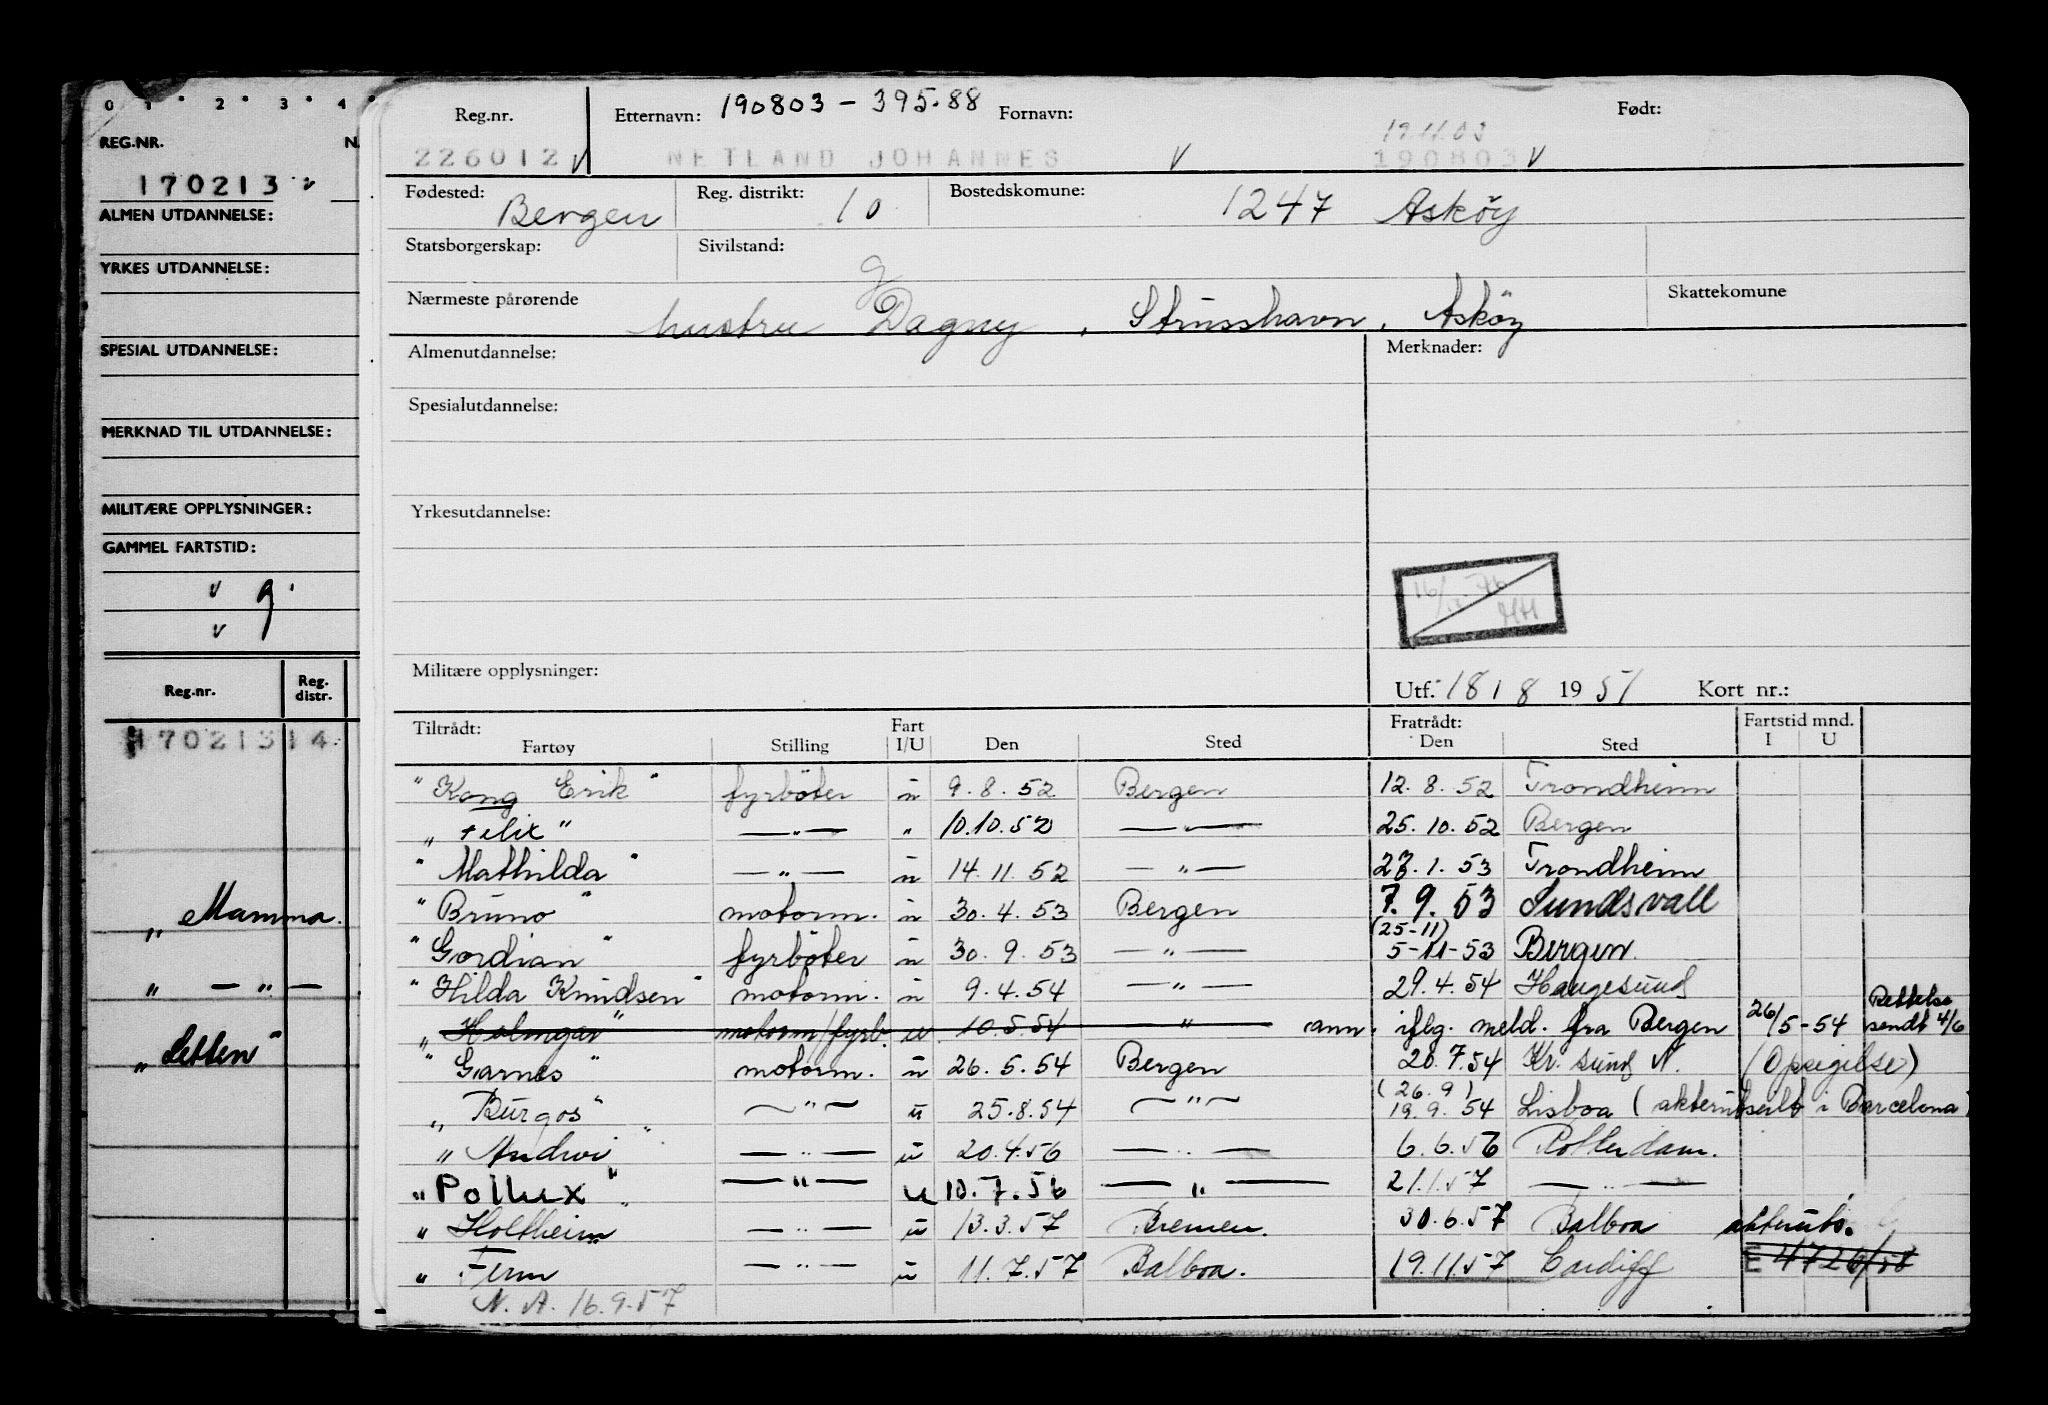 0 1 2 3 4
REG.NR.
170213 v
ALMEN UTDANNELSE:
YRKES UTDANNELSE:
SPESIAL UTDANNELSE:
MERKNAD TIL UTDANNELSE:
MILITÆRE OPPLYSNINGER:
GAMMEL FARTSTID:
v g.
v
Reg.nr. Reg. distr.
17021314
„ Mamma
„ — „ —
„ Letten"
Reg.nr. Etternavn: 190803 - 395.88 Fornavn: Født:
226012 v NETLAND JOHANNES v 190803 v
Fødested: Bergen Reg. distrikt: 10 Bostedskomune: 1247 Asköy
Statsborgerskap: Sivilstand: g
Nærmeste pårørende hustru Dagny, Strusshavn, Asköy Skattekomune
Almenutdannelse: Merknader:
Spesialutdannelse:
Yrkesutdannelse:
Militære opplysninger: Utf. 18 / 8 1951 Kort nr.:
Tiltrådt: Fart Fratrådt: Fartstid mnd.
Fartøy Stilling I/U Den Sted Den Sted I U
"Kong Erik" fyrböter u 9.8.52 Bergen 12.8.52 Trondheim
„Felix" — „ — „ 10.10.52 — „ — 25.10.52 Bergen
"Mathilda" — „ — u 14.11.52 — „ — 27.1.53 Trondheim
"Bruno" motorm. u 30.4.53 Bergen 7.9.53 Sundsvall
(25-11)
"Gordian" fyrböter u 30.9.53 — „ — 5-11-53 Bergen.
"Hilda Knudsen" motorm. u 9.4.54 — „ — 29.4.54 Haugesund
„Holmgar" motorm/fyrb. u 10.5.54 — „ — ann. iflg. meld. fra Bergen 26/5-54 Rettelse sendt 4/6
"Garnes" motorm. u 26.5.54 Bergen 20.7.54 Kr.sund N. (Opsigelse)
(26.9)
„Burgos" — „ — u 25.8.54 — „ — 19.9.54 Lisboa (akterutseilt i Barcelona)
„Andwi" — „ — u 20.4.56 — „ — 6.6.56 Rotterdam.
"Pollux" — „ — u 10.7.56 — „ — 21.1.57 — „ —
„Holtheim — „ — u 13.3.57 Bremen. 30.6.57 Balboa akteruts.
„Fern — „ — u 11.7.57 Balboa. 19.11.57 Cardiff E 4726/58
N.A. 16.9.57